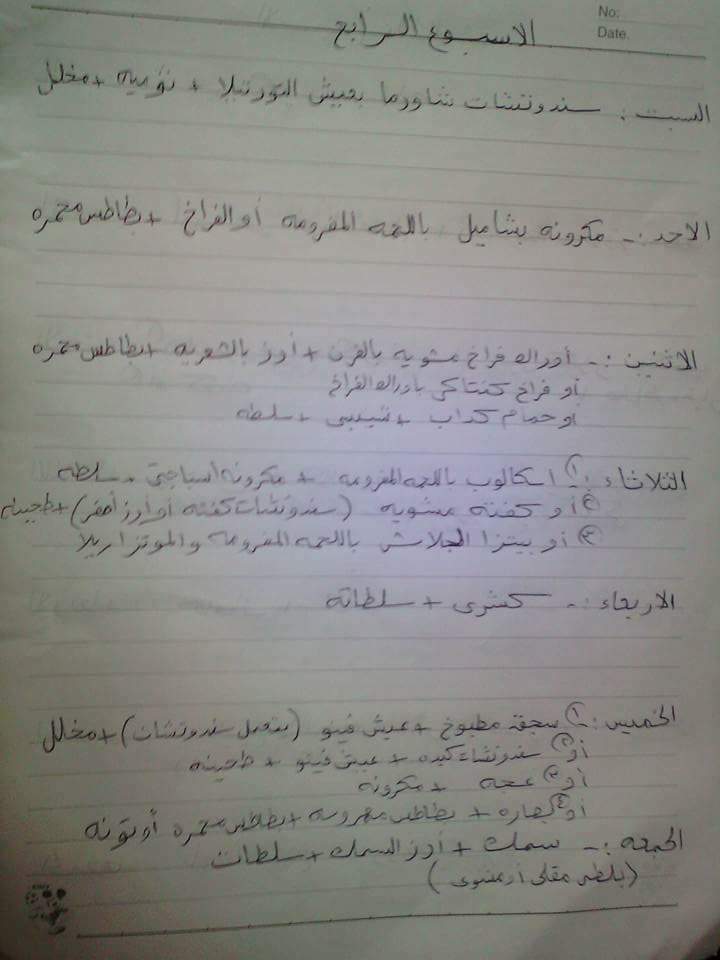 No:
Date.
الاسبوع الرابع
السبت : سندوتشات شاورما بعيش التورتيلا + تومية + مخلل
الاحد :- مكرونه بشاميل باللحمه المفرومه أو الفراخ + بطاطس محمره
الاثنين :- أوراك فراخ مشويه بالفرن + أرز بالشعريه + بطاطس محمره
أو فراخ كنتاكى بأوراك الفراخ
أو حمام كداب + تبسى + سلطه
الثلاثاء :- ① اسكالوب باللحمه المفرومه + مكرونه اسباجتى - سلطه
② أو كفته مشويه (سندوتشات كفته أو أرز أصفر) + طحينه
③ أو بيتزا الجلاش باللحمه المفرومه والموتزاريلا
الاربعاء :- كشرى + سلطاته
الخميس : ① سجق مطبوخ + عيش فينو (بنعمل سندوتشات) + مخلل
أو ② سندوتشات كبده + عيش فينو + طحينه
أو ③ عجه + مكرونه
أو ④ بصاره + بطاطس مهروسه + بطاطس محمره أو تونه
الجمعه :- سمك + أرز السمك + سلطات
(بلطى مقلى أو مشوى)